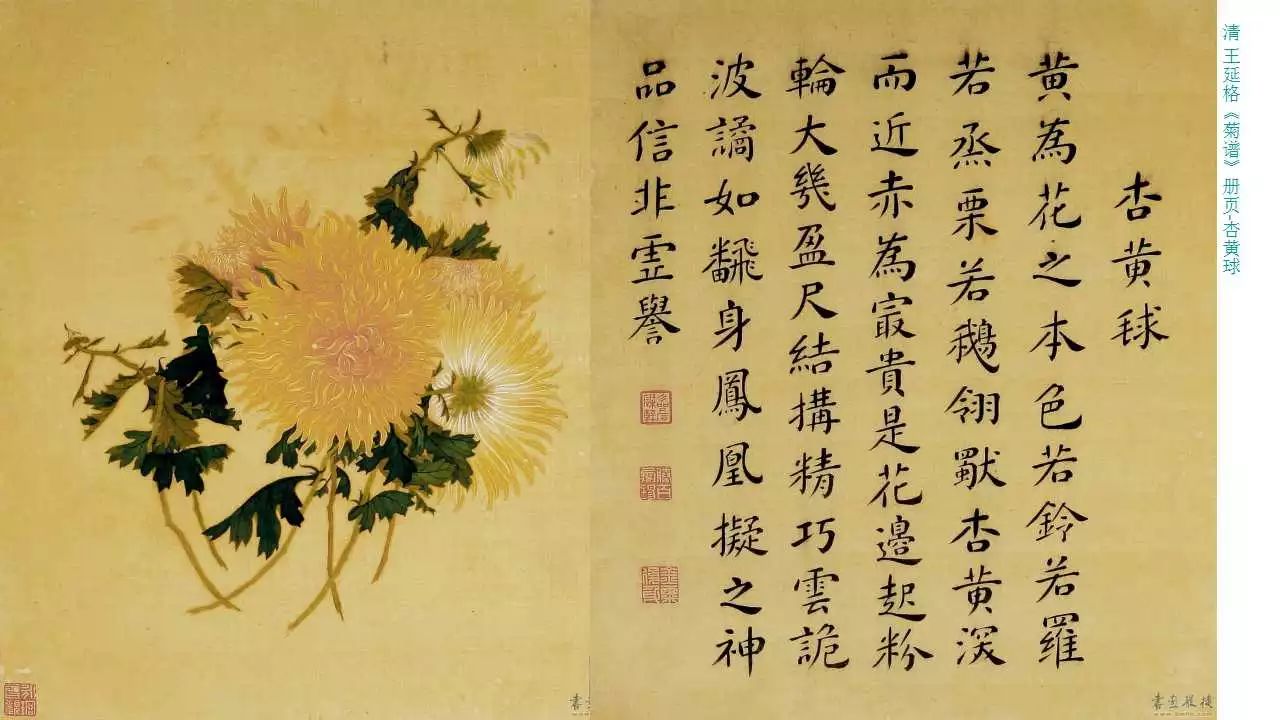 杏黄毬
黄為花之本色若鈴若羅
若烝栗若鵝翎獸杏黄深
而近赤為冣貴是花邊起粉
輪大幾盈尺結搆精巧雲詭
波譎如飜身鳳凰擬之神
品信非虛譽
清 王延格《菊谱》册页-杏黄球